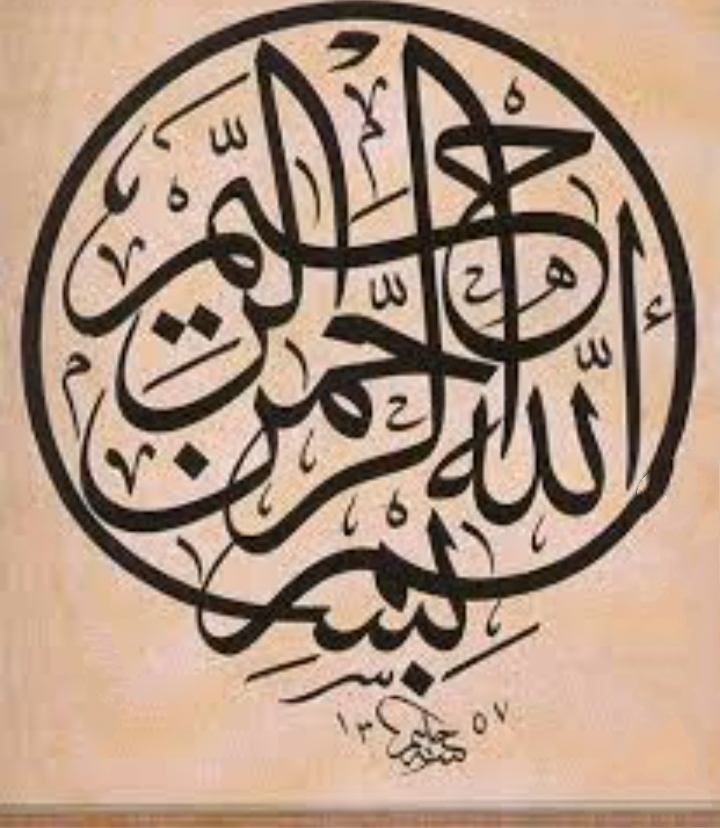 بسم الله الرحمن الرحيم
١٣ ٥٧